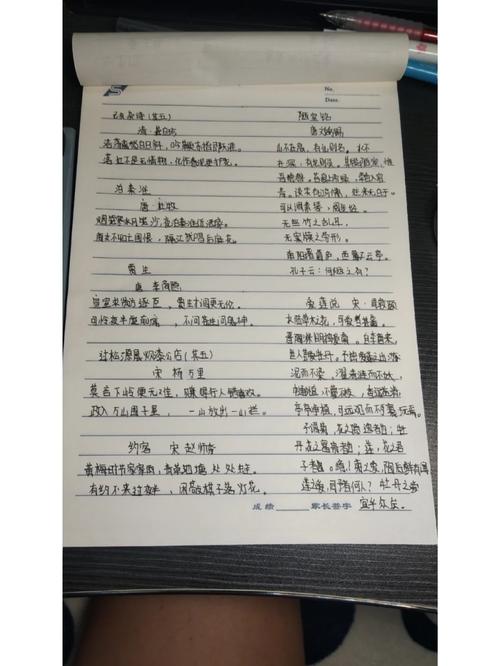 No.
Date.
己亥杂诗(其五)
清·龚自珍
浩荡离愁白日斜,吟鞭东指即天涯。
落红不是无情物,化作春泥更护花。
泊秦淮
唐 杜牧
烟笼寒水月笼沙,夜泊秦淮近酒家。
商女不知亡国恨,隔江犹唱后庭花。
贾生
唐 李商隐
宣室求贤访逐臣,贾生才调更无伦。
可怜夜半虚前席,不问苍生问鬼神。
过松源晨炊漆公店(其五)
宋 杨万里
莫言下岭便无难,赚得行人错喜欢。
政入万山围子里,一山放出一山拦。
约客 宋 赵师秀
黄梅时节家家雨,青草池塘处处蛙。
有约不来过夜半,闲敲棋子落灯花。
陋室铭
唐 刘禹锡
山不在高,有仙则名。水不
在深,有龙则灵。斯是陋室,惟
吾德馨。苔痕上阶绿,草色入帘
青。谈笑有鸿儒,往来无白丁。
可以调素琴,阅金经。
无丝竹之乱耳,
无案牍之劳形。
南阳诸葛庐,西蜀子云亭。
孔子云:何陋之有?
爱莲说 宋·周敦颐
水陆草木之花,可爱者甚蕃。
晋陶渊明独爱菊。自李唐来,
世人甚爱牡丹。予独爱莲之出淤
泥而不染,濯清涟而不妖,
中通外直,不蔓不枝,香远益清,
亭亭净植,可远观而不可亵玩焉。
予谓菊,花之隐逸者也;牡
丹,花之富贵者也;莲,花之君
子者也。噫!菊之爱,陶后鲜有闻。
莲之爱,同予者何人?牡丹之爱
宜乎众矣。
成绩 家长签字